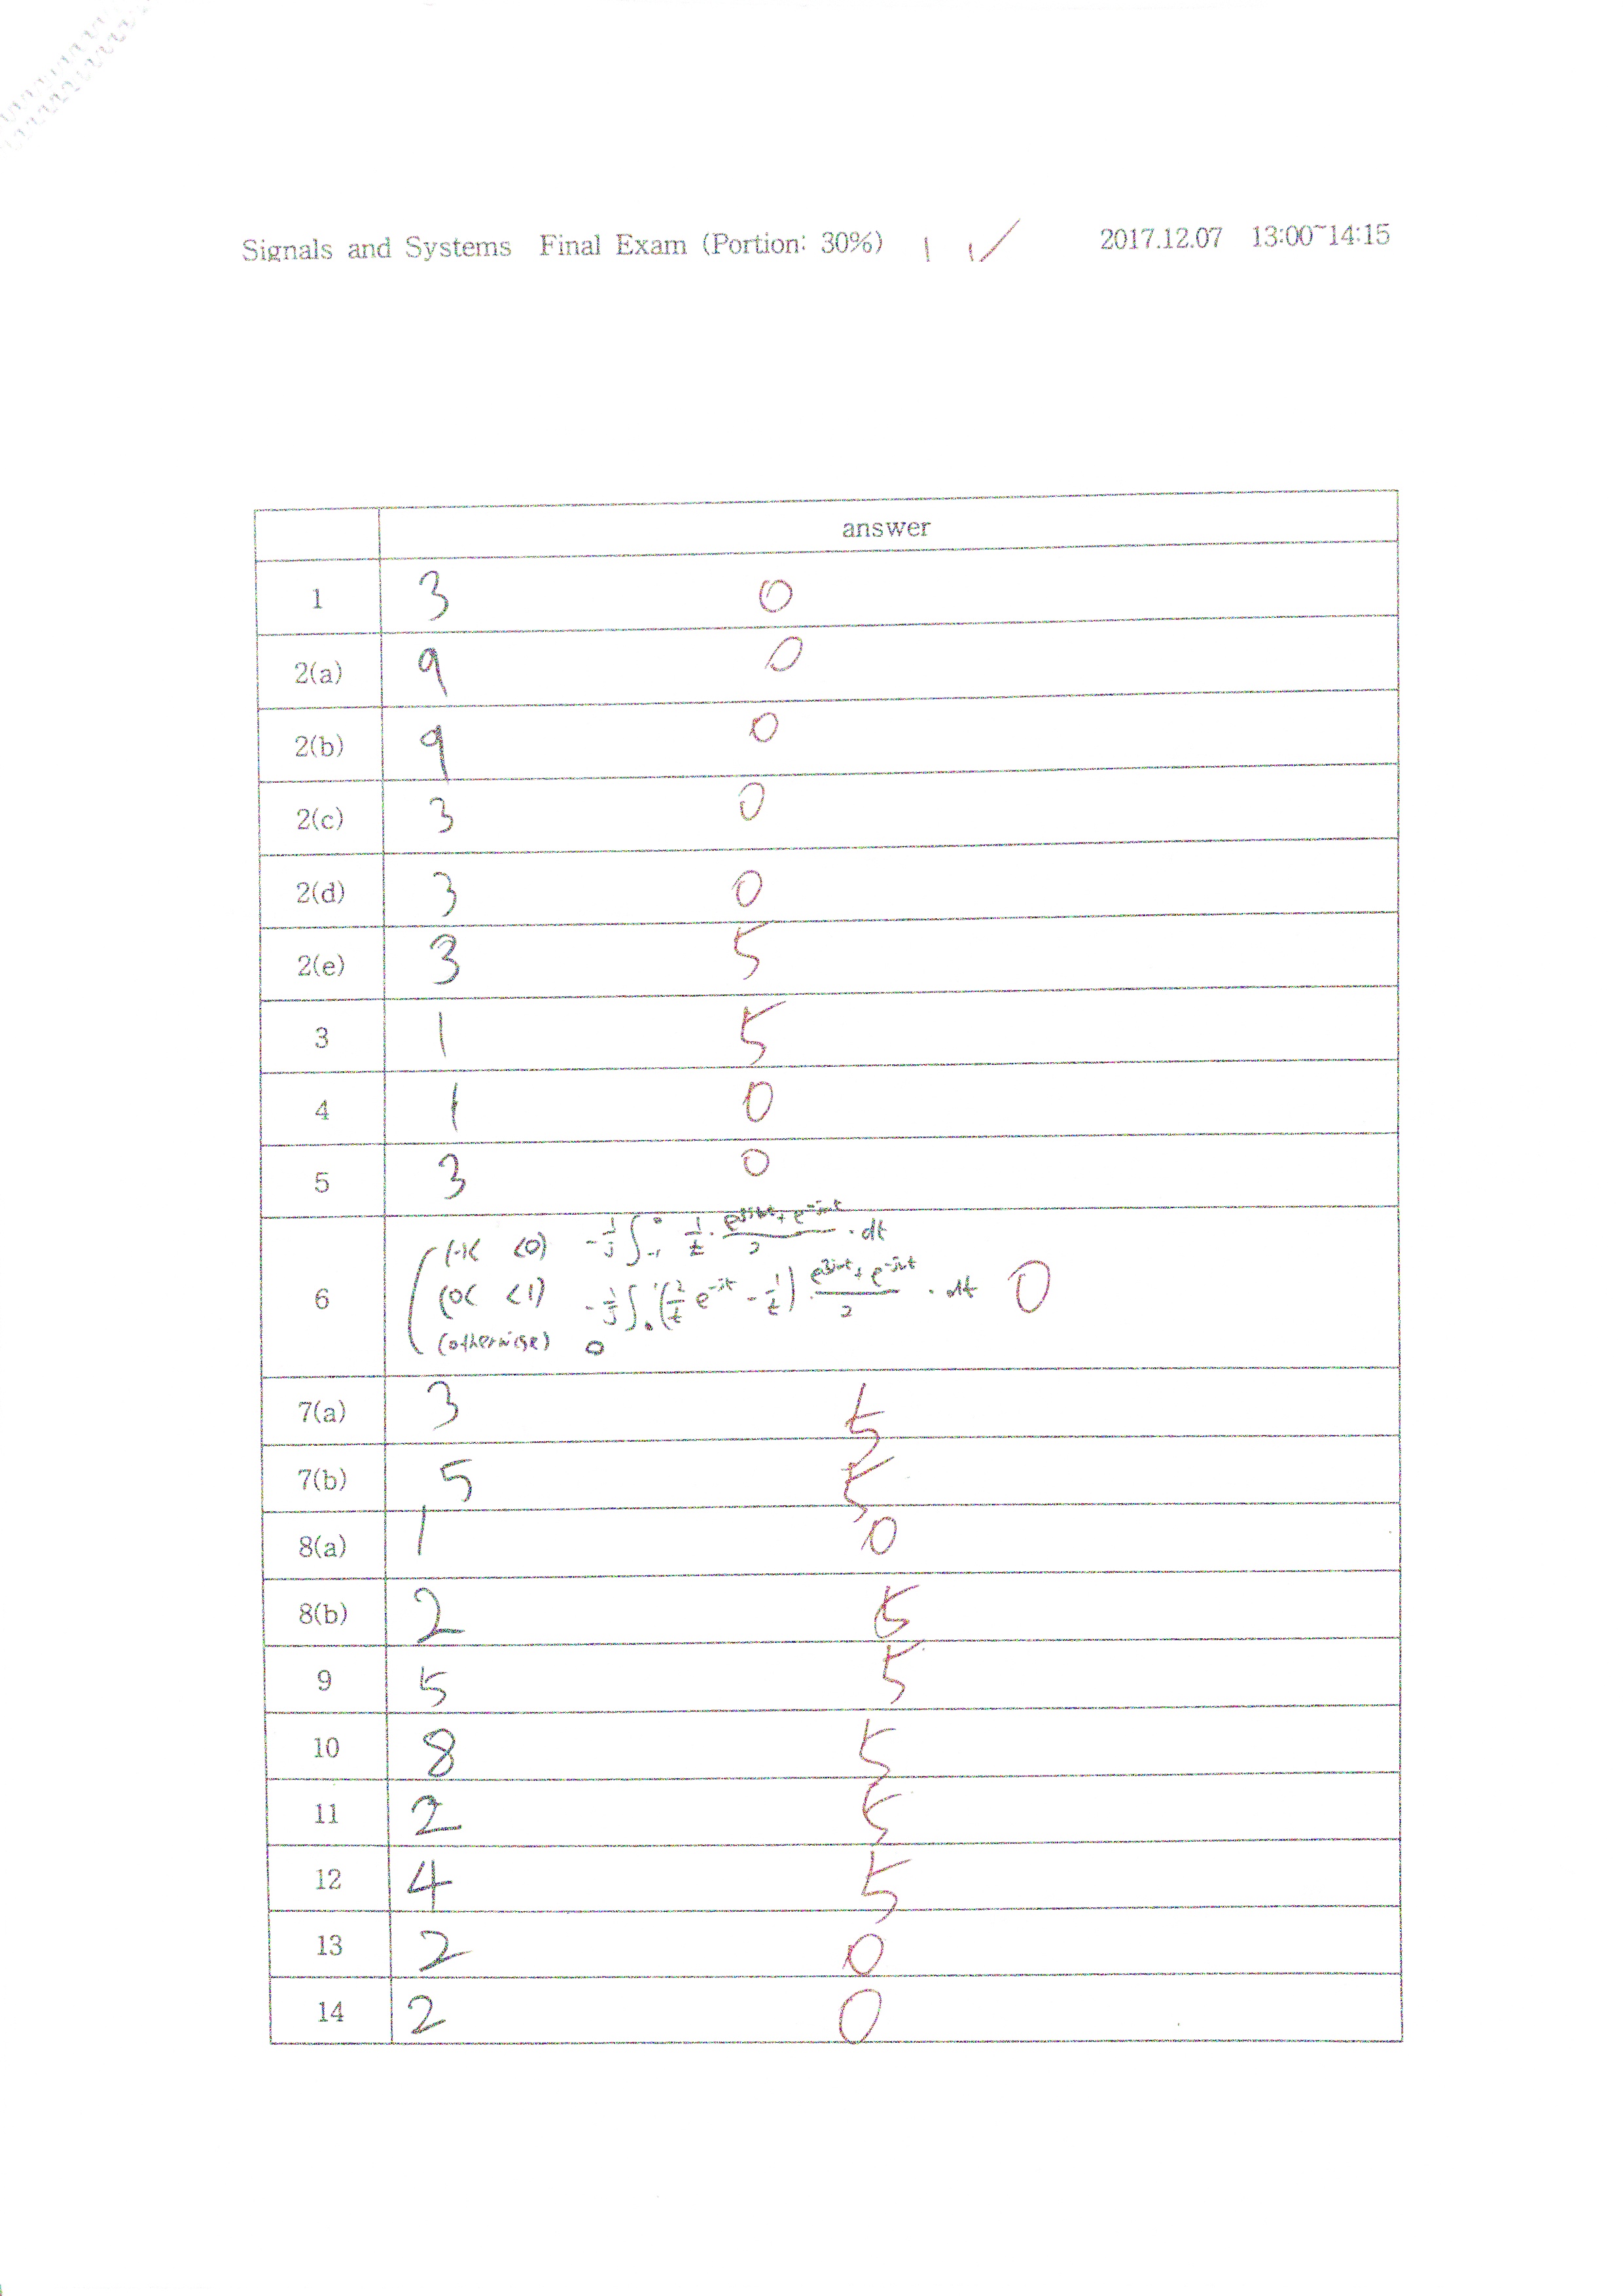 Signals and Systems Final Exam (Portion: 30%) 2017.12.07 13:00~14:15
answer
1 3 0
2(a) 9 0
2(b) 9 0
2(c) 3 0
2(d) 3 0
2(e) 3 5
3 1 5
4 1 0
5 3 0
(-1< <0) -1/j ∫_{-1}^{0} 1/t · dt
6 (0< <1) -1/j ∫_{0}^{1} (2/t e^{-jt} - 1/t) · dt 0
(otherwise) 0
7(a) 3 5
7(b) 5 5
8(a) 1 0
8(b) 2 5
9 5 5
10 8 5
11 2 5
12 4 5
13 2 0
14 2 0